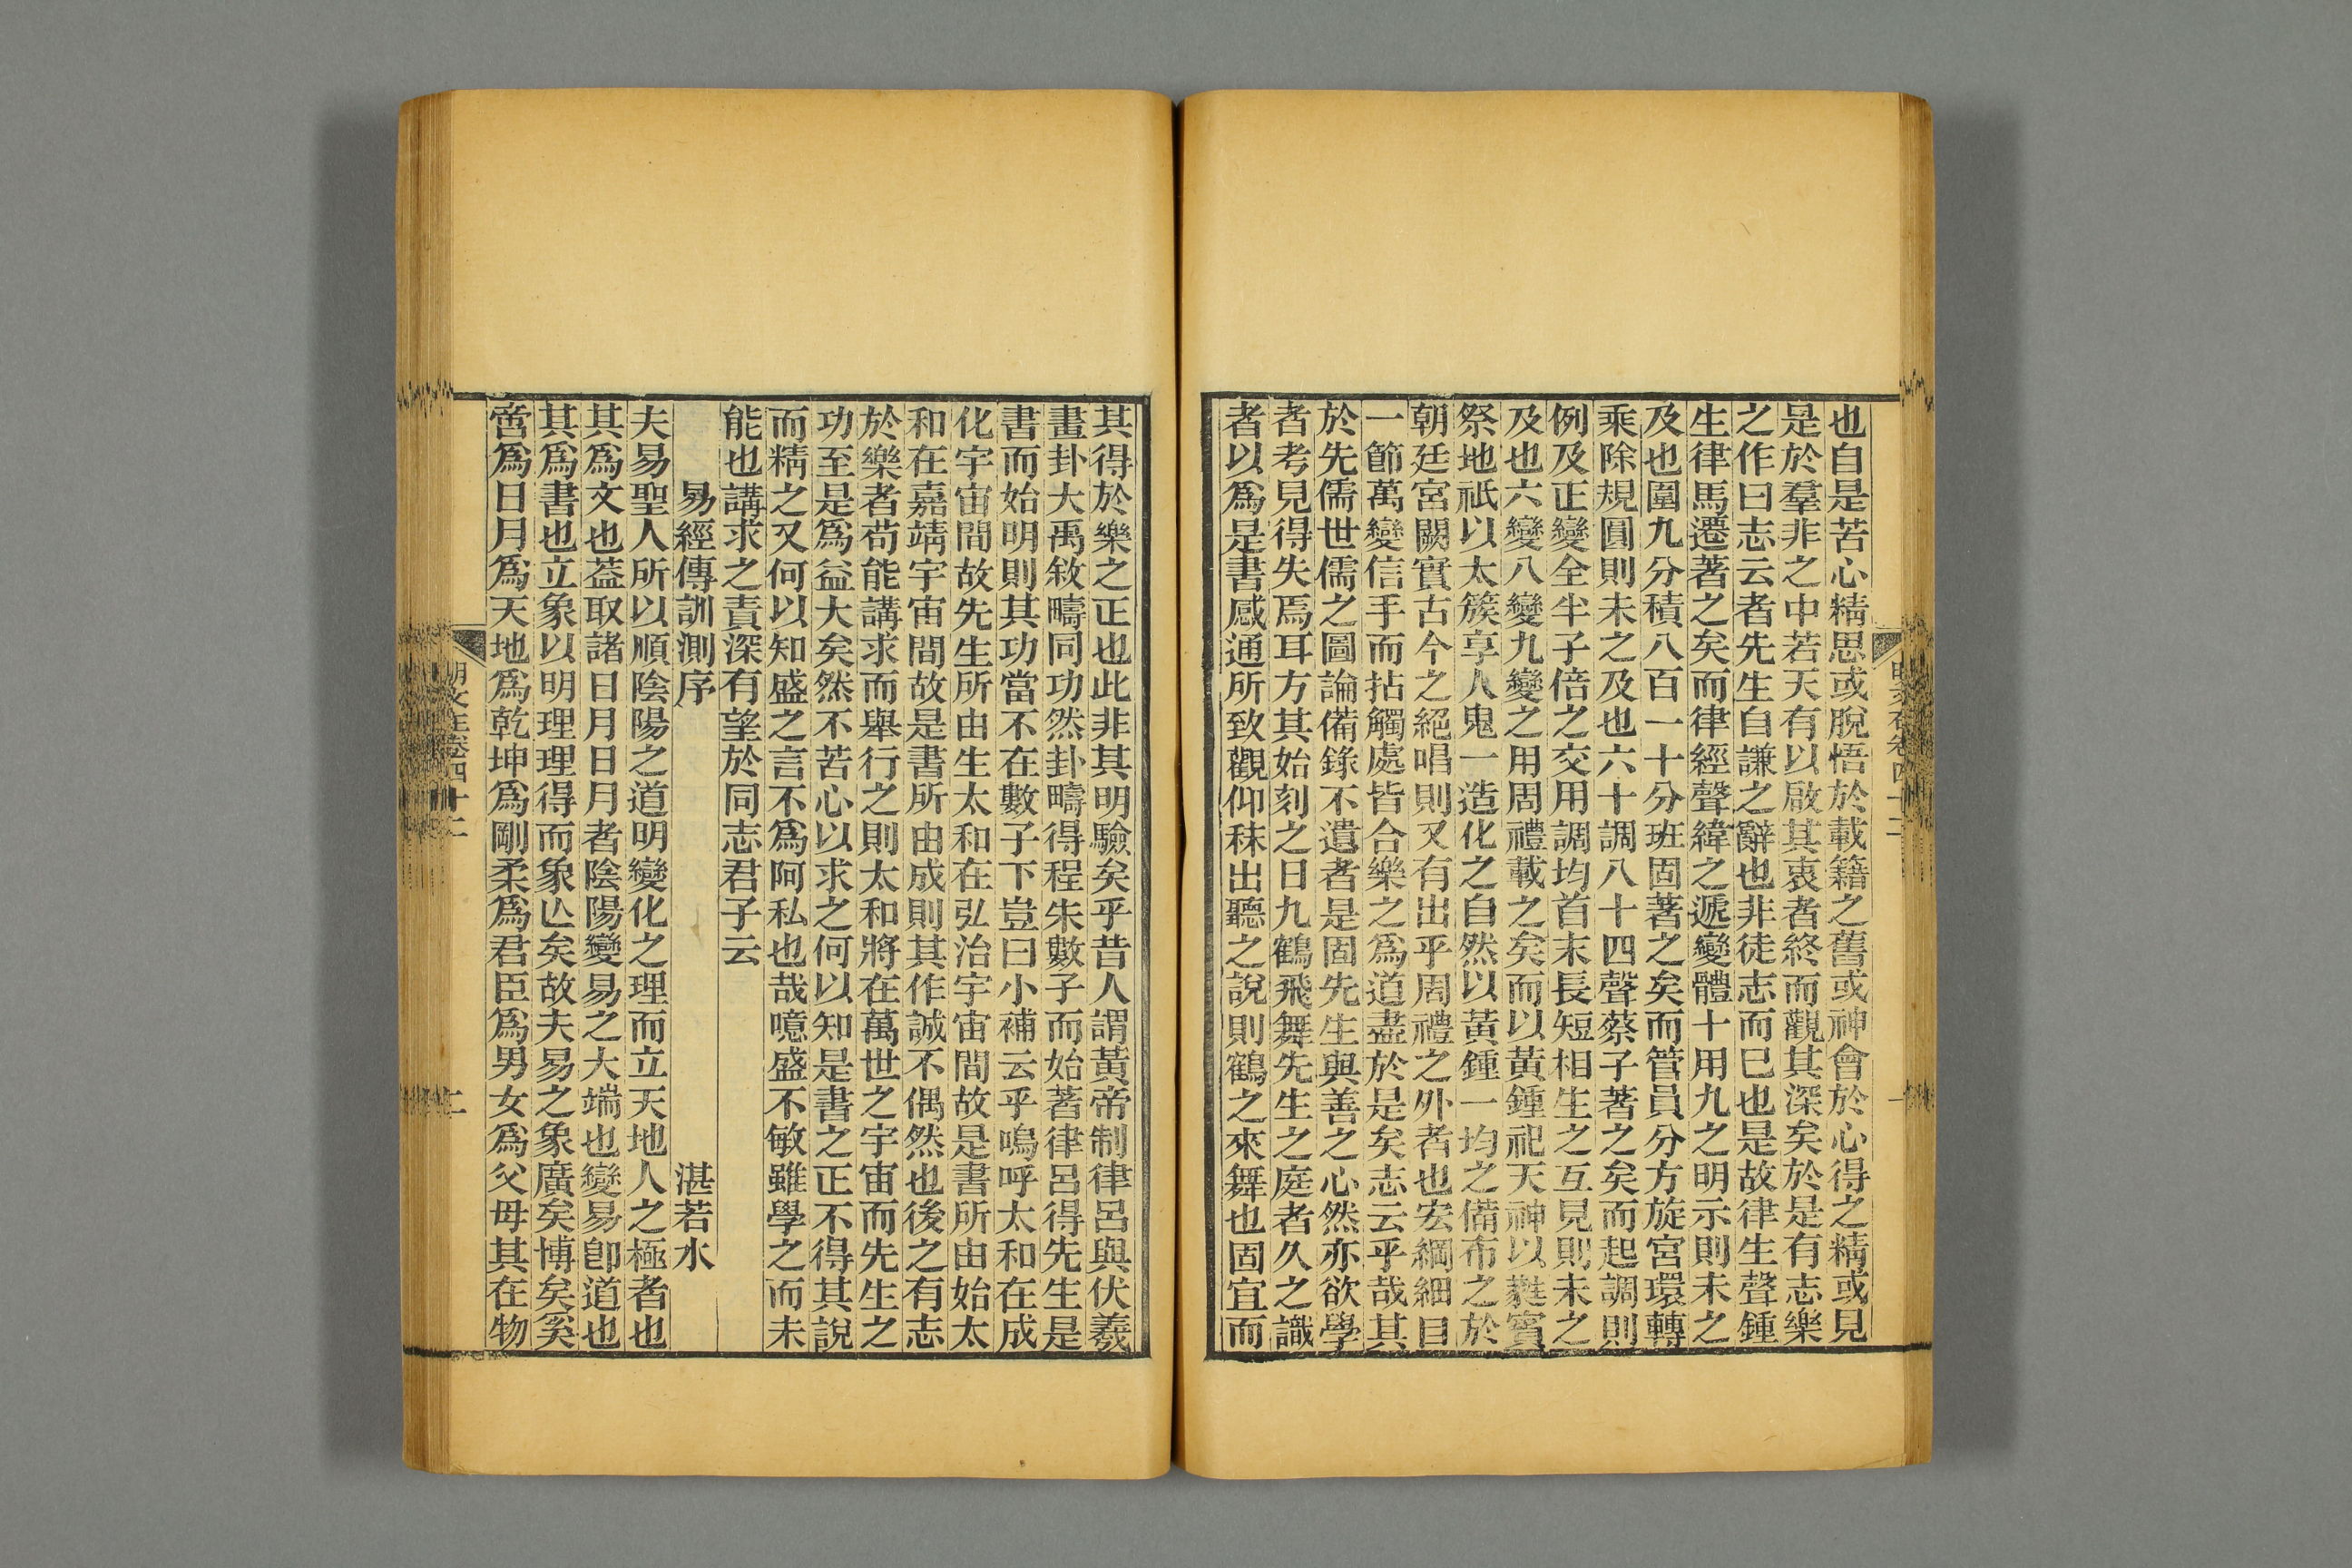 也自是苦心精思或脫悟於載籍之舊或神會於心得之精或見
是於羣非之中若天有以啟其衷者終而觀其深矣於是有志樂
之作曰志云者先生自謙之辭也非徒志而已也是故律生聲鍾
生律馬遷著之矣而律經聲緯之遞變體十用九之明示則未之
及也圍九分積八百一十分班固著之矣而管員分方旋宮環轉
乘除規圓則未之及也六十調八十四聲蔡子著之矣而起調則
例及正變全半子倍之交用調均首末長短相生之互見則未之
及也六變八變九變之用周禮載之矣而以黃鍾祀天神以蕤賓
祭地祇以太簇享人鬼一造化之自然以黃鍾一均之備布之於
朝廷宮闕實古今之絕唱則又有出乎周禮之外者也宏綱細目
一節萬變信手而拈觸處皆合樂之爲道盡於是矣志云乎哉其
於先儒世儒之圖論備錄不遺者是固先生與善之心然亦欲學
者考見得失焉耳方其始刻之日九鶴飛舞先生之庭者久之識
者以爲是書感通所致觀仰秣出聽之說則鶴之來舞也固宜而
其得於樂之正也此非其明驗矣乎昔人謂黃帝制律呂與伏羲
畫卦大禹敘疇同功然卦疇得程朱數子而始著律呂得先生是
書而始明則其功當不在數子下豈曰小補云乎嗚呼太和在成
化宇宙間故先生所由生太和在弘治宇宙間故是書所由始太
和在嘉靖宇宙間故是書所由成則其作誠不偶然也後之有志
於樂者苟能講求而舉行之則太和將在萬世之宇宙而先生之
功至是爲益大矣然不苦心以求之何以知是書之正不得其說
而精之又何以知盛之言不爲阿私也哉噫盛不敏雖學之而未
能也講求之責深有望於同志君子云
易經傳訓測序 湛若水
夫易聖人所以順陰陽之道明變化之理而立天地人之極者也
其爲文也葢取諸日月日月者陰陽變易之大端也變易卽道也
其爲書也立象以明理理得而象亾矣故夫易之象廣矣博矣奚
啻爲日月爲天地爲乾坤爲剛柔爲君臣爲男女爲父母其在物
明文在卷四十二
二